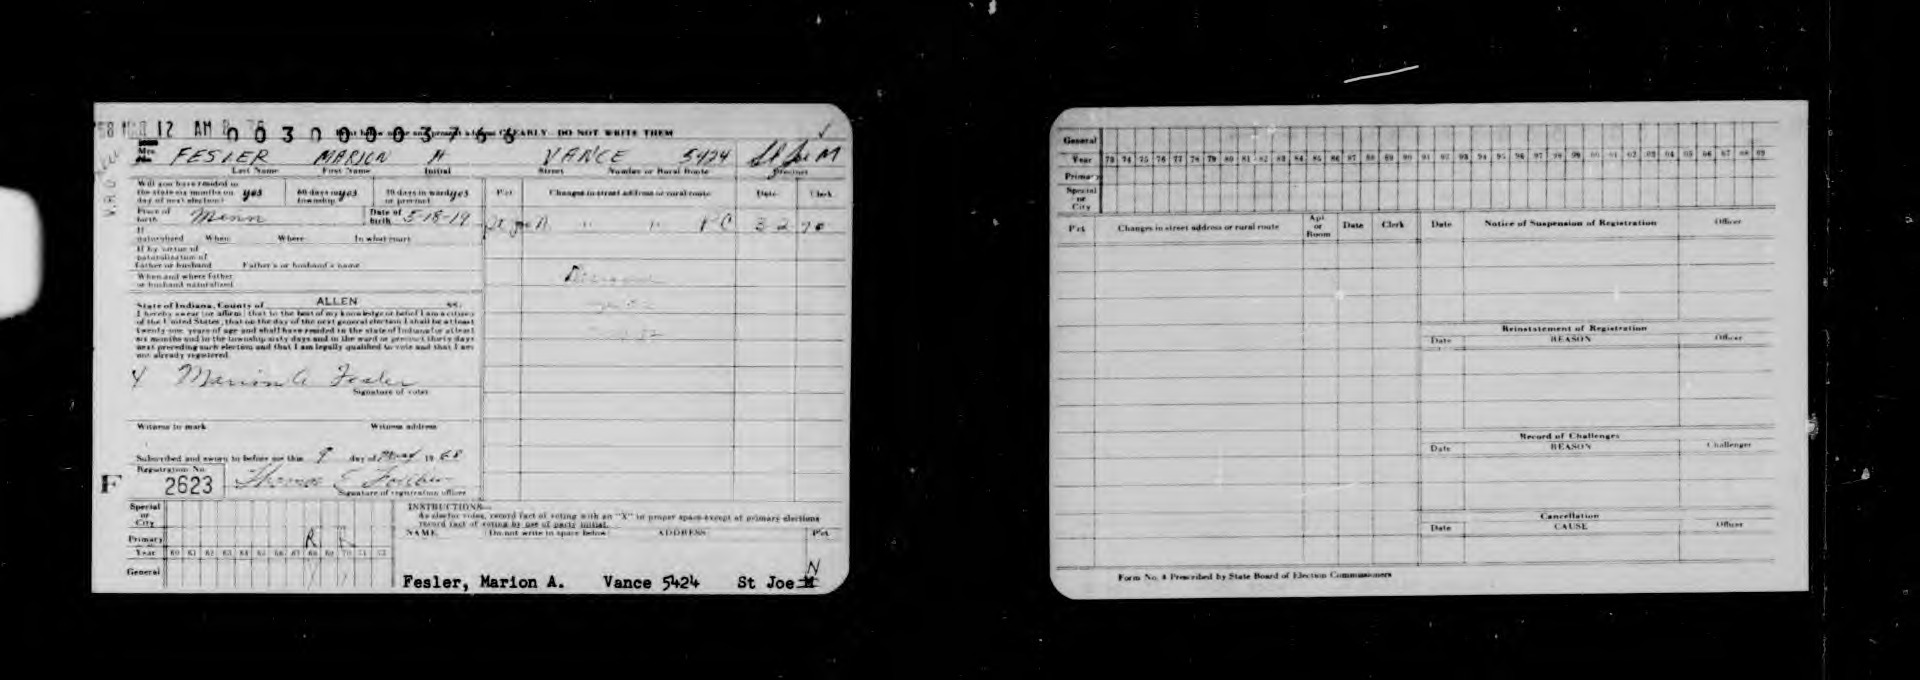 12 AM
00300003766
CLEARLY - DO NOT WRITE THEM
Mrs. FESLER MARION A VANCE 5424 St Joe M
Last Name First Name Initial Street Number or Rural Route Precinct
Will you have resided in the state six months on day of next election? yes 60 days in township yes 30 days in ward or precinct yes
Pct Changes in street address or rural route Date Clerk
Place of birth Minn Date of birth 5-18-19
St Joe N " " 3 2 70
If naturalized When Where In what court
If by virtue of naturalization of Father or husband Father's or husband's name
When and where father or husband naturalized
State of Indiana, County of ALLEN ss:
I hereby swear (or affirm) that to the best of my knowledge or belief I am a citizen
of the United States, that on the day of the next general election I shall be at least
twenty-one years of age and shall have resided in the state of Indiana for at least
six months and in the township sixty days and in the ward or precinct thirty days
next preceding such election and that I am legally qualified to vote and that I am
not already registered.
Marion A Fesler
Signature of voter
Witness to mark Witness address
Subscribed and sworn to before me this 9 day of 19 68
Registration No.
F 2623 Thomas E
Signature of registration officer
Special or City
Primary R R
Year 60 61 62 63 64 65 66 67 68 69 70 71 72
General
INSTRUCTIONS—
As elector votes, record fact of voting with an "X" in proper space except at primary elections
record fact of voting by use of party initial.
NAME (Do not write in space below) ADDRESS Pct
N
Fesler, Marion A. Vance 5424 St Joe M
General
Year 73 74 75 76 77 78 79 80 81 82 83 84 85 86 87 88 89 90 91 92 93 94 95 96 97 98 99
Primary
Special or City
Pct Changes in street address or rural route Apt. or Room Date Clerk
Date Notice of Suspension of Registration Officer
Reinstatement of Registration
Date REASON Officer
Record of Challenges
Date REASON Challenger
Cancellation
Date CAUSE Officer
Form No. 4 Prescribed by State Board of Election Commissioners